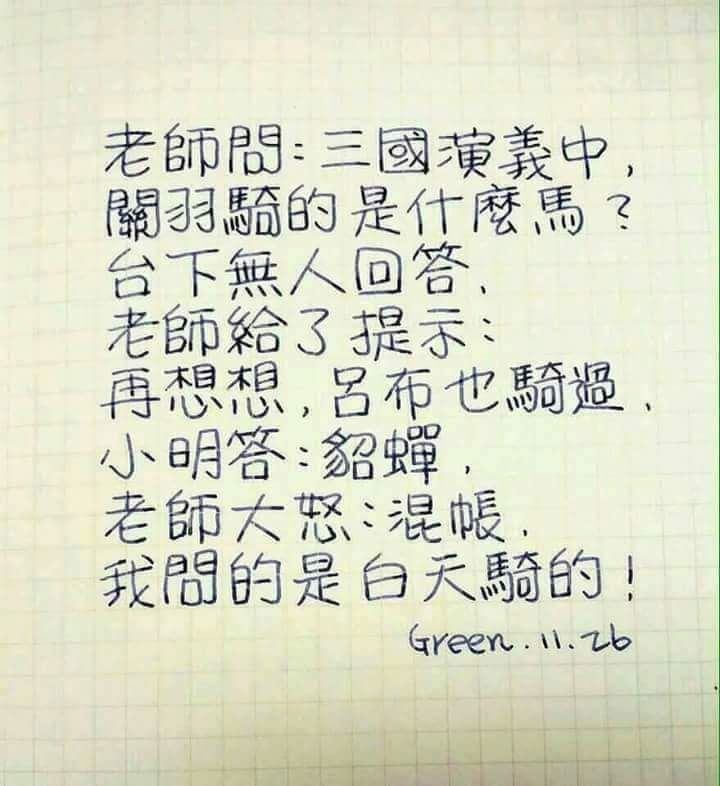 老師問:三國演義中,
關羽騎的是什麼馬?
台下無人回答.
老師給了提示:
再想想,呂布也騎過.
小明答:貂蟬.
老師大怒:混帳.
我問的是白天騎的!
Green.11.26